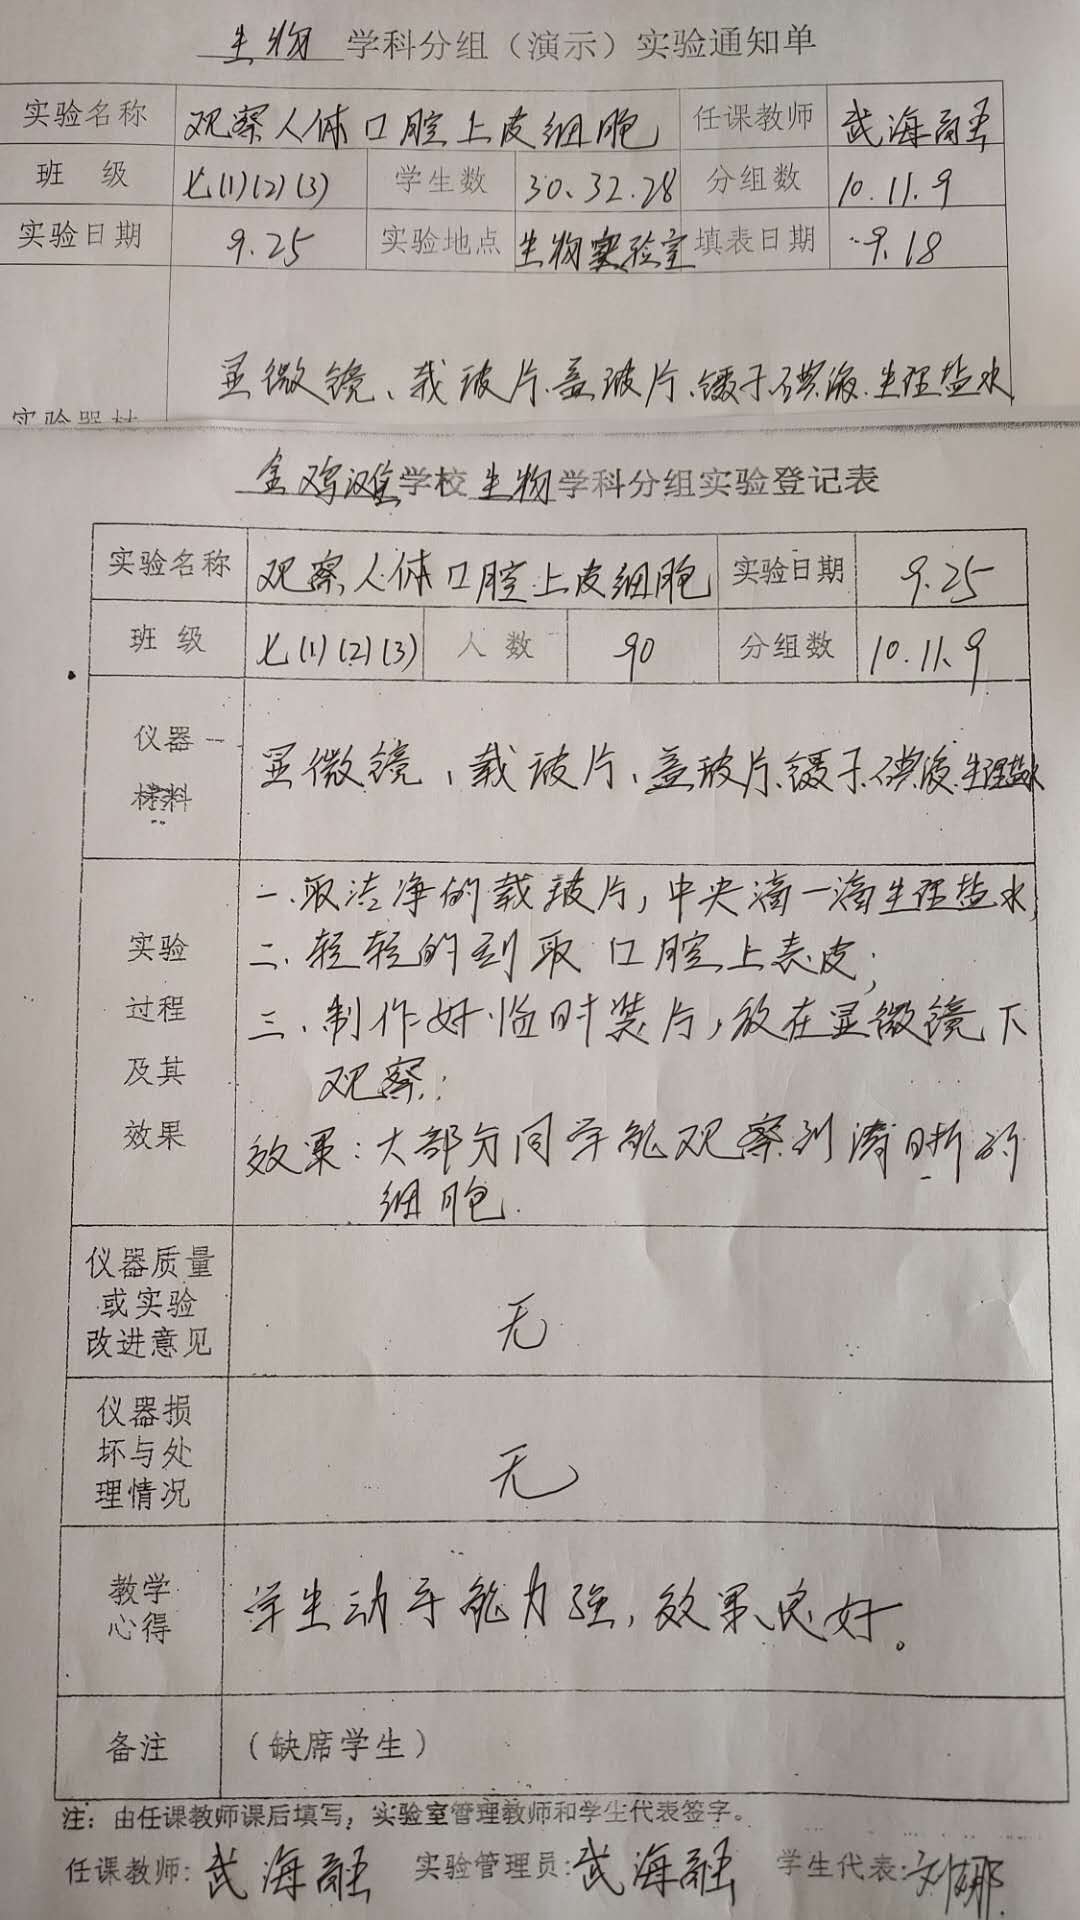 生物 学科分组（演示）实验通知单
实验名称 观察人体口腔上皮细胞 任课教师 武海融
班 级 七(1)(2)(3) 学生数 30、32.28 分组数 10.11.9
实验日期 9.25 实验地点 生物实验室 填表日期 9.18
显微镜、载玻片.盖玻片.镊子.碘液.生理盐水
实验器材
金鸡滩学校 生物 学科分组实验登记表
实验名称 观察人体口腔上皮细胞 实验日期 9.25
班 级 七(1)(2)(3) 人 数 90 分组数 10.11、9
仪器
材料
显微镜、载玻片、盖玻片.镊子.碘液.生理盐水
实验
过程
及其
效果
一.取洁净的载玻片，中央滴一滴生理盐水;
二、轻轻的刮取口腔上表皮;
三、制作好临时装片，放在显微镜下
观察;
效果：大部分同学能观察到清晰的
细胞.
仪器质量
或实验
改进意见
无
仪器损
坏与处
理情况
无
教学
心得
学生动手能力强，效果良好。
备注 （缺席学生）
注：由任课教师课后填写，实验室管理教师和学生代表签字。
任课教师: 武海融 实验管理员: 武海融 学生代表: 刘娜